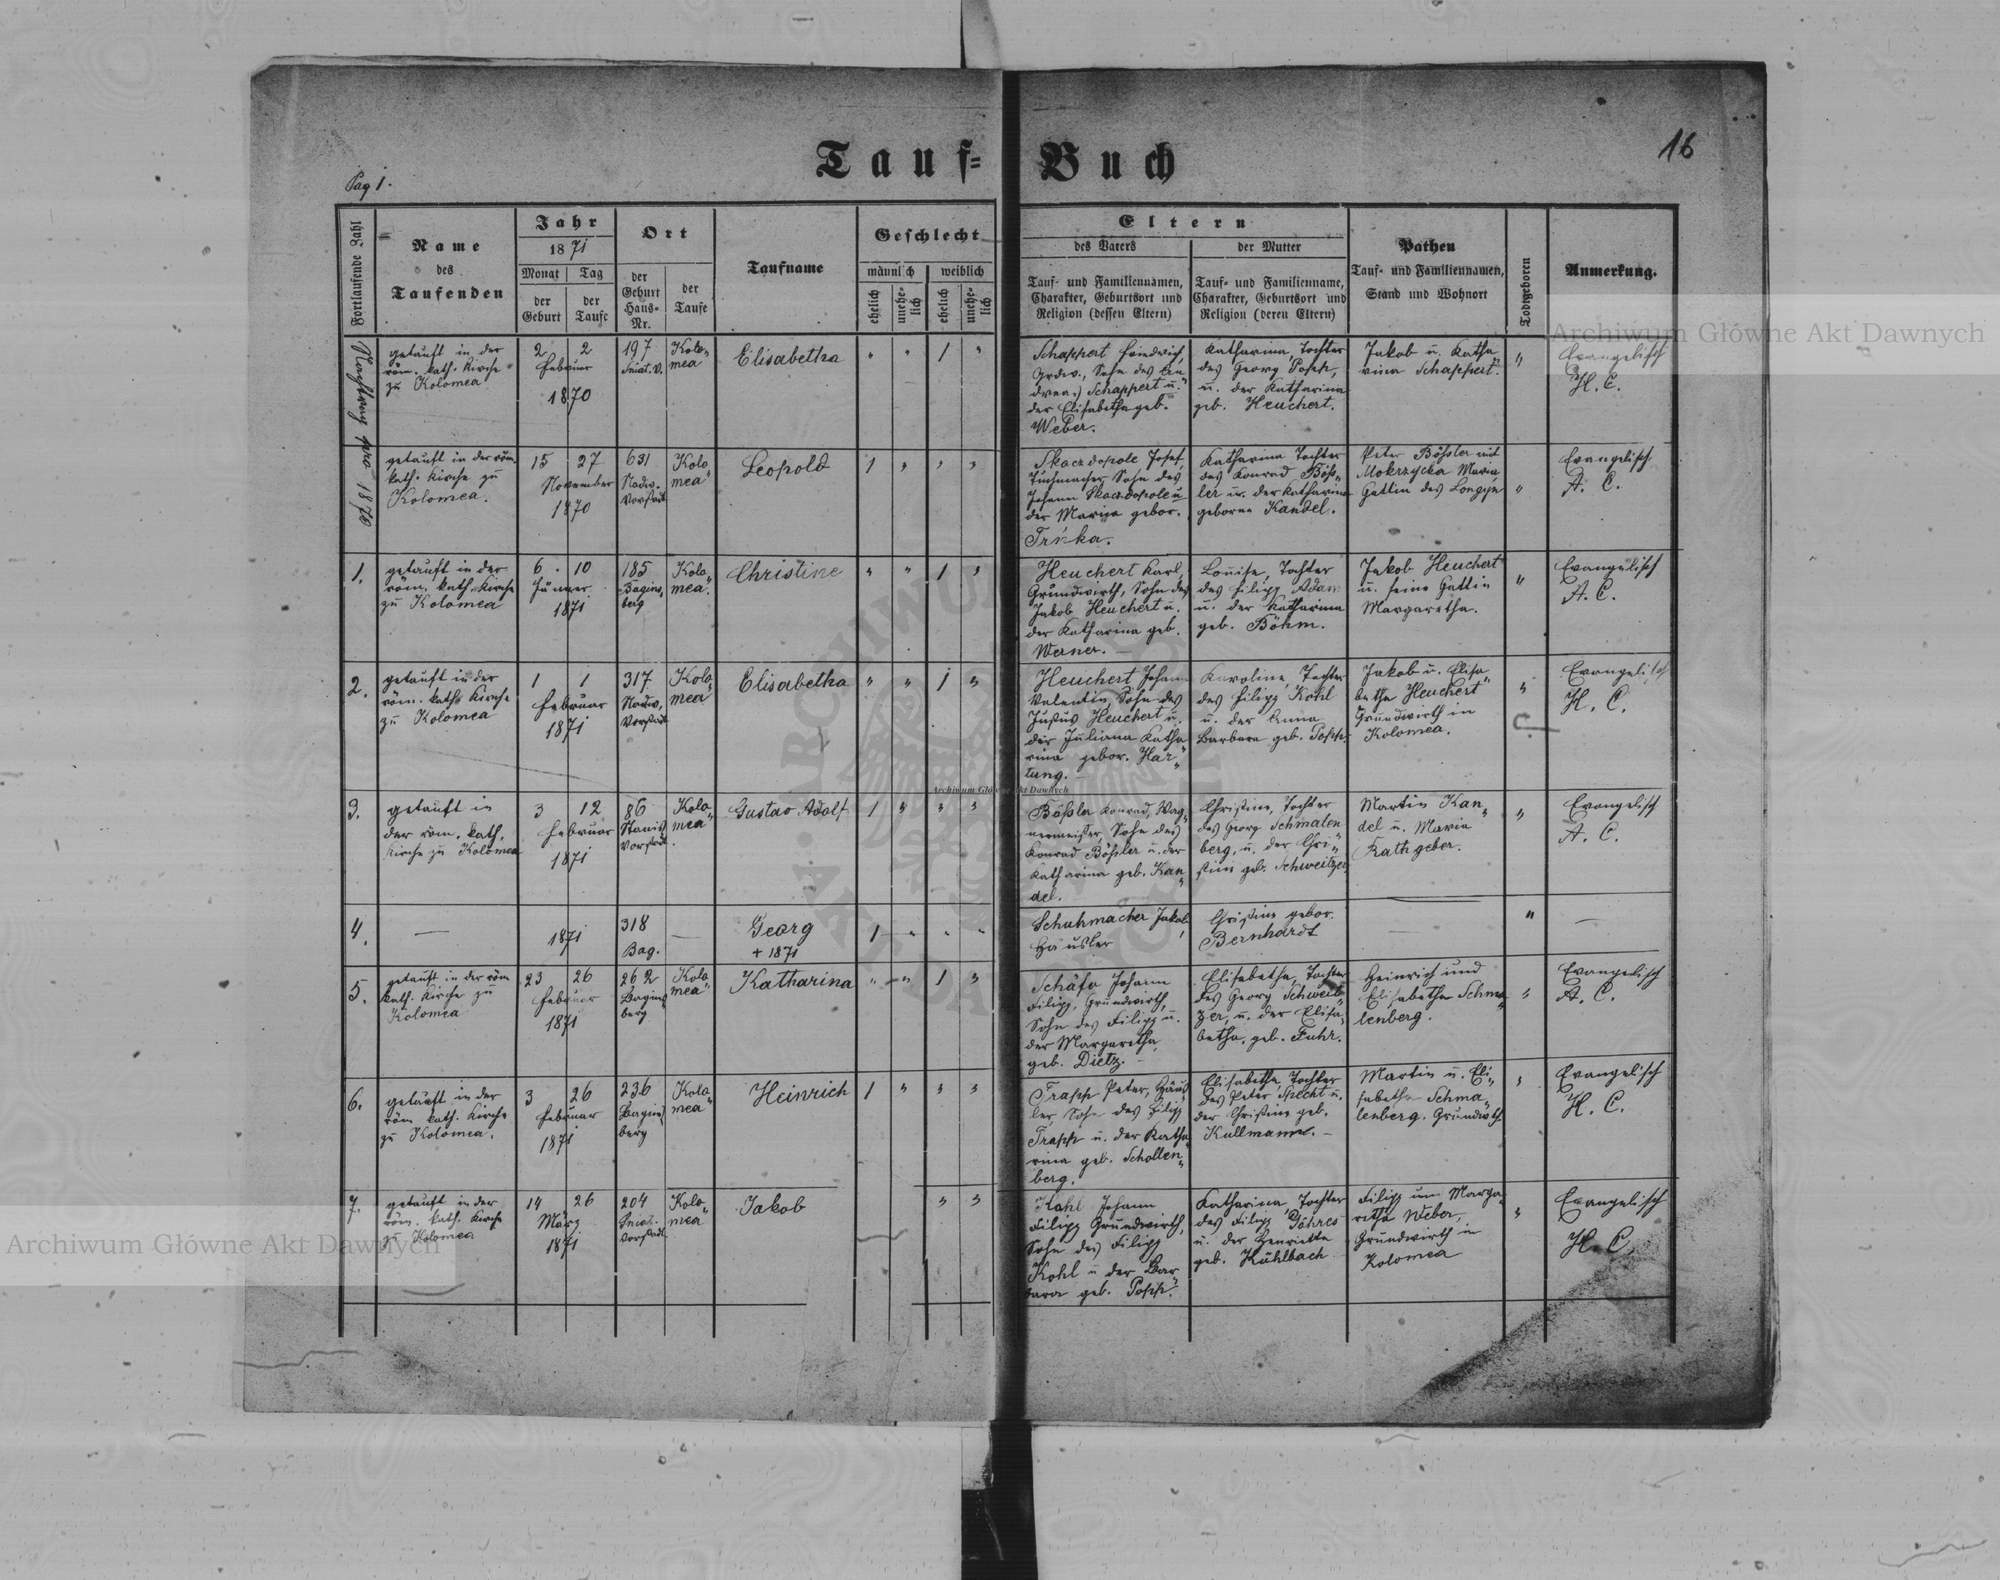 Tauf= Buch
16
Pag 1.
Fortlaufende Zahl
Name
des
Taufenden
Jahr
1871
Monat
der
Geburt
Tag
der
Taufe
Ort
der
Geburt
Haus=
Nr.
der
Taufe
Taufname
Geschlecht
männlich
weiblich
ehelich
unehe-
lich
ehelich
unehe-
lich
Eltern
des Vaters
Tauf- und Familiennamen,
Charakter, Geburtsort und
Religion (dessen Eltern)
der Mutter
Tauf- und Familienname,
Charakter, Geburtsort und
Religion (deren Eltern)
Pathen
Tauf- und Familiennamen,
Stand und Wohnort
Todtgeboren
Anmerkung.
Nachtrag pro 1870
getauft in der
röm. kath. Kirche
zu Kolomea
2 2
Februar
1870
197
Sniat. V.
Kolo„
mea
Elisabetha
" " 1 "
Schappert Friedrich,
Grdw., Sohn des An
dreas Schappert u.
der Elisabetha geb.
Weber.
Katharina, Tochter
des Georg Popp,
u. der Katharina
geb. Heuchert.
Jakob u. Katha
rina Schappert.
"
Evangelisch
H. C.
getauft in der röm.
kath. Kirche zu
Kolomea.
15 27
November
1870
631
Nadw.
Vorstadt
Kolo
mea
Leopold
1 " " "
Skaczdopole Josef,
Tuchmacher Sohn des
Johann Skaczdopole u
der Maria gebor.
Trnka.
Katharina Tochter
des Konrad Böß„
ler u. der Katharina
geborne Kandel.
Peter Bößler mit
Mokrzycka Maria,
Gattin des Longyn
"
Evangelisch
A. C.
1.
getauft in der
röm. kath. Kirche
zu Kolomea
6. 10
Jänner
1871
185
Bagins„
berg
Kolo„
mea.
Christine
" " 1 "
Heuchert Karl,
Grundwirth, Sohn des
Jakob Heuchert u.
der Katharina geb.
Werner.
Louise, Tochter
des Filipp Adam
u. der Katharina
geb. Böhm.
Jakob Heuchert
u. seine Gattin
Margaretha.
"
Evangelisch
A. C.
2.
getauft in der
röm. kath. Kirche
zu Kolomea
1 1
Februar
1871
317
Nadw.
Vorstadt
Kolo„
mea
Elisabetha
" " 1 "
Heuchert Johann
Valentin, Sohn des
Justus Heuchert u.
der Juliana Katha
rina gebor. Har„
tung.
Karoline, Tochter
des Filipp Kohl
u. der Anna
Barbara geb. Popp.
Jakob u. Elisa„
betha Heuchert
Grundwirth in
Kolomea.
"
Evangelisch
H. C.
3.
getauft in
der röm. kath.
Kirche zu Kolomea
3 12
Februar
1871
86
Stanisl
Vorstadt
Kolo
mea„
Gustav Adolf
1 " " "
Bößler Konrad, Wag„
nermeister, Sohn des
Konrad Bößler u. der
Katharina geb. Kan„
del.
Christine, Tochter
des Georg Schmalen
berg, u. der Chri„
stine geb. Schweitzer
Martin Kan„
del u. Maria
Rathgeber.
"
Evangelisch
A. C.
4.
—
1871
318
Bag.
—
Georg
+ 1871
1 " " "
Schuhmacher Jakob,
Häusler
Christine gebor.
Bernhardt
—
"
—
5.
getauft in der röm
kath. Kirche zu
Kolomea
23 26
Februar
1871
262
Bagins
berg
Kolo
mea„
Katharina
" " 1 "
Schäfer Johann
Filipp, Grundwirth,
Sohn des Filipp u.
der Margaretha
geb. Dietz.
Elisabetha, Tochter
des Georg Schweit„
zer, u. der Elisa„
betha, geb. Fuhr.
Heinrich und
Elisabetha Schma„
lenberg.
"
Evangelisch
A. C.
6.
getauft in der
röm kath. Kirche
zu Kolomea.
3 26
Februar
1871
236
Bagins
berg
Kolo„
mea
Heinrich
1 " " "
Trapp Peter, Häus
ler, Sohn des Filipp
Trapp u. der Katha„
rina geb. Schollen„
berg.
Elisabetha, Tochter
des Peter Specht u.
der Christine geb.
Kullmann. —
Martin u. Eli„
sabetha Schma„
lenberg. Grundwth.
"
Evangelisch
H. C.
7.
getauft in der
röm. kath. Kirche
zu Kolomea
14 26
März
1871
204
Sniat.
Vorstadt
Kolo„
mea
Jakob
" "
Kohl Johann
Filipp Grundwirth,
Sohn des Filipp
Kohl u der Bar„
bara geb. Popp.
Katharina Tochter
des Filipp Jöhres
u. der Henrietta
geb. Kühlbach
Filipp und Marga„
retha Weber,
Grundwirth in
Kolomea
"
Evangelisch
H. C.
Archiwum Główne Akt Dawnych
Archiwum Główne Akt Dawnych
Archiwum Główne Akt Dawnych
ARCHIWUM